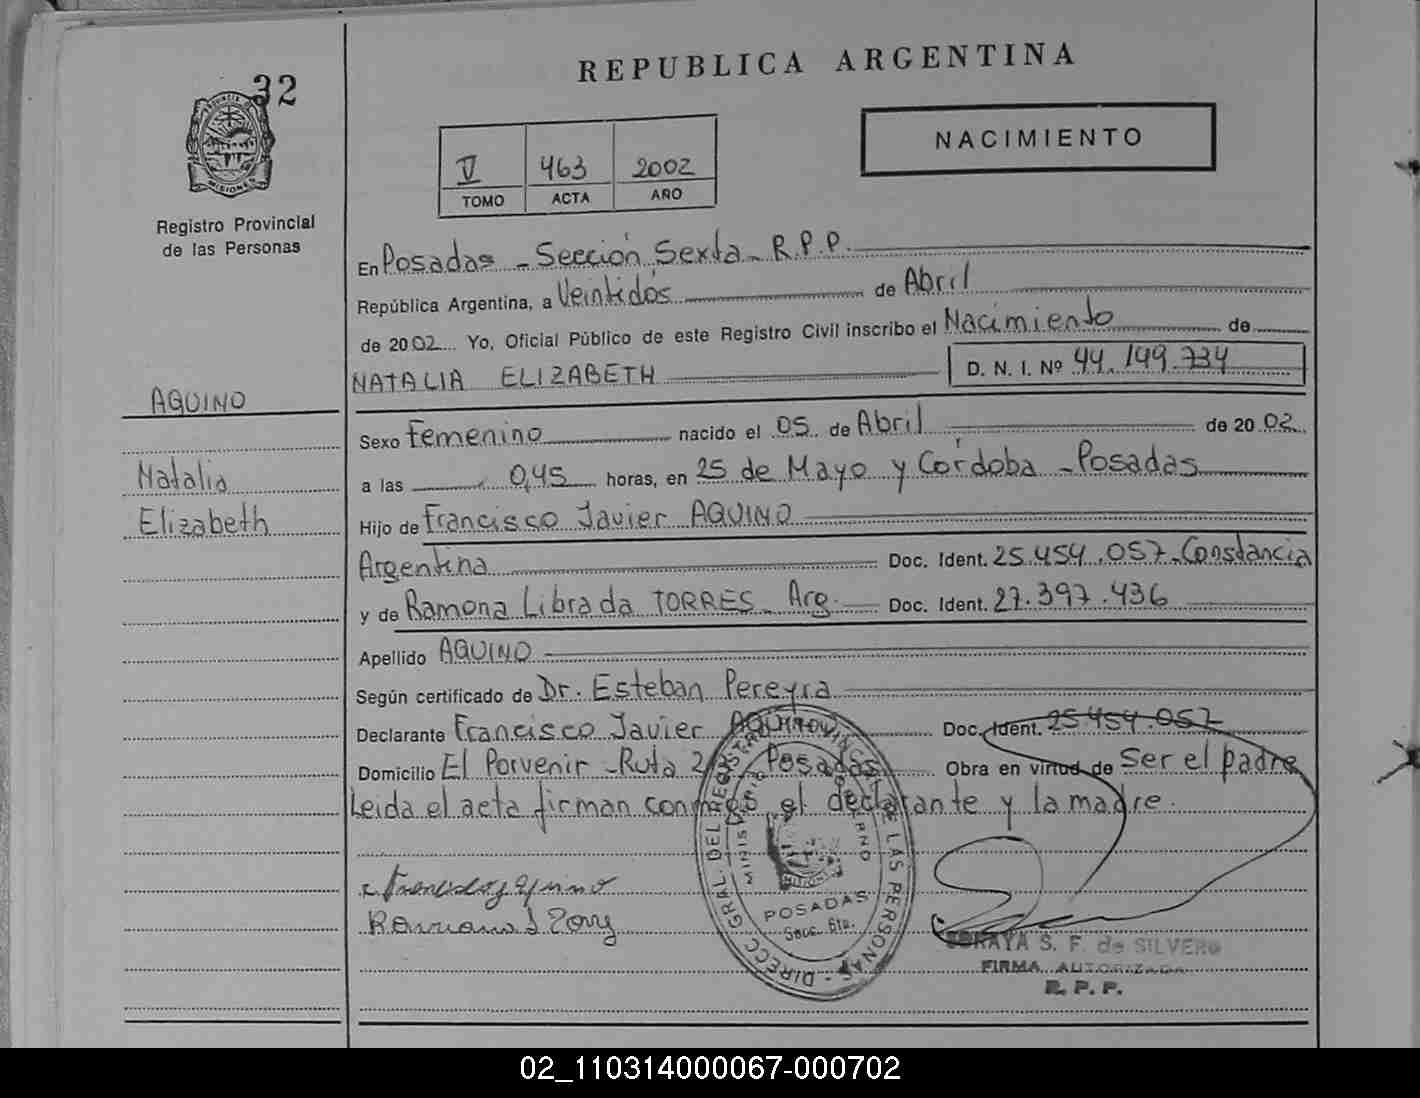 REPUBLICA ARGENTINA
32
PROVINCIA DE
MISIONES
Registro Provincial
de las Personas
V 463 2002
TOMO ACTA AÑO
NACIMIENTO
En Posadas - Sección Sexta - R.P.P.
República Argentina, a Veintidós de Abril
de 2002 Yo, Oficial Público de este Registro Civil inscribo el Nacimiento de
NATALIA ELIZABETH D. N. I. Nº 44.149.734
AQUINO
Natalia
Elizabeth
Sexo Femenino nacido el 05 de Abril de 2002
a las 0,45 horas, en 25 de Mayo y Córdoba - Posadas
Hijo de Francisco Javier AQUINO
Argentina Doc. Ident. 25.454.057 - Constancia
y de Ramona Librada TORRES - Arg. Doc. Ident. 27.397.436
Apellido AQUINO
Según certificado de Dr. Esteban Pereyra
Declarante Francisco Javier AQUINO Doc. Ident. 25.454.057
Domicilio El Porvenir - Ruta Posadas Obra en virtud de Ser el padre
Leida el acta firman conmigo el declarante y la madre.
DIRECC GRAL. DEL REGISTRO PROVINCIAL DE LAS PERSONAS
MINISTERIO GOBIERNO
POSADAS
Secc. 6ta.
SORAYA S. F. de SILVERO
FIRMA AUTORIZADA
R. P. P.
02_110314000067-000702